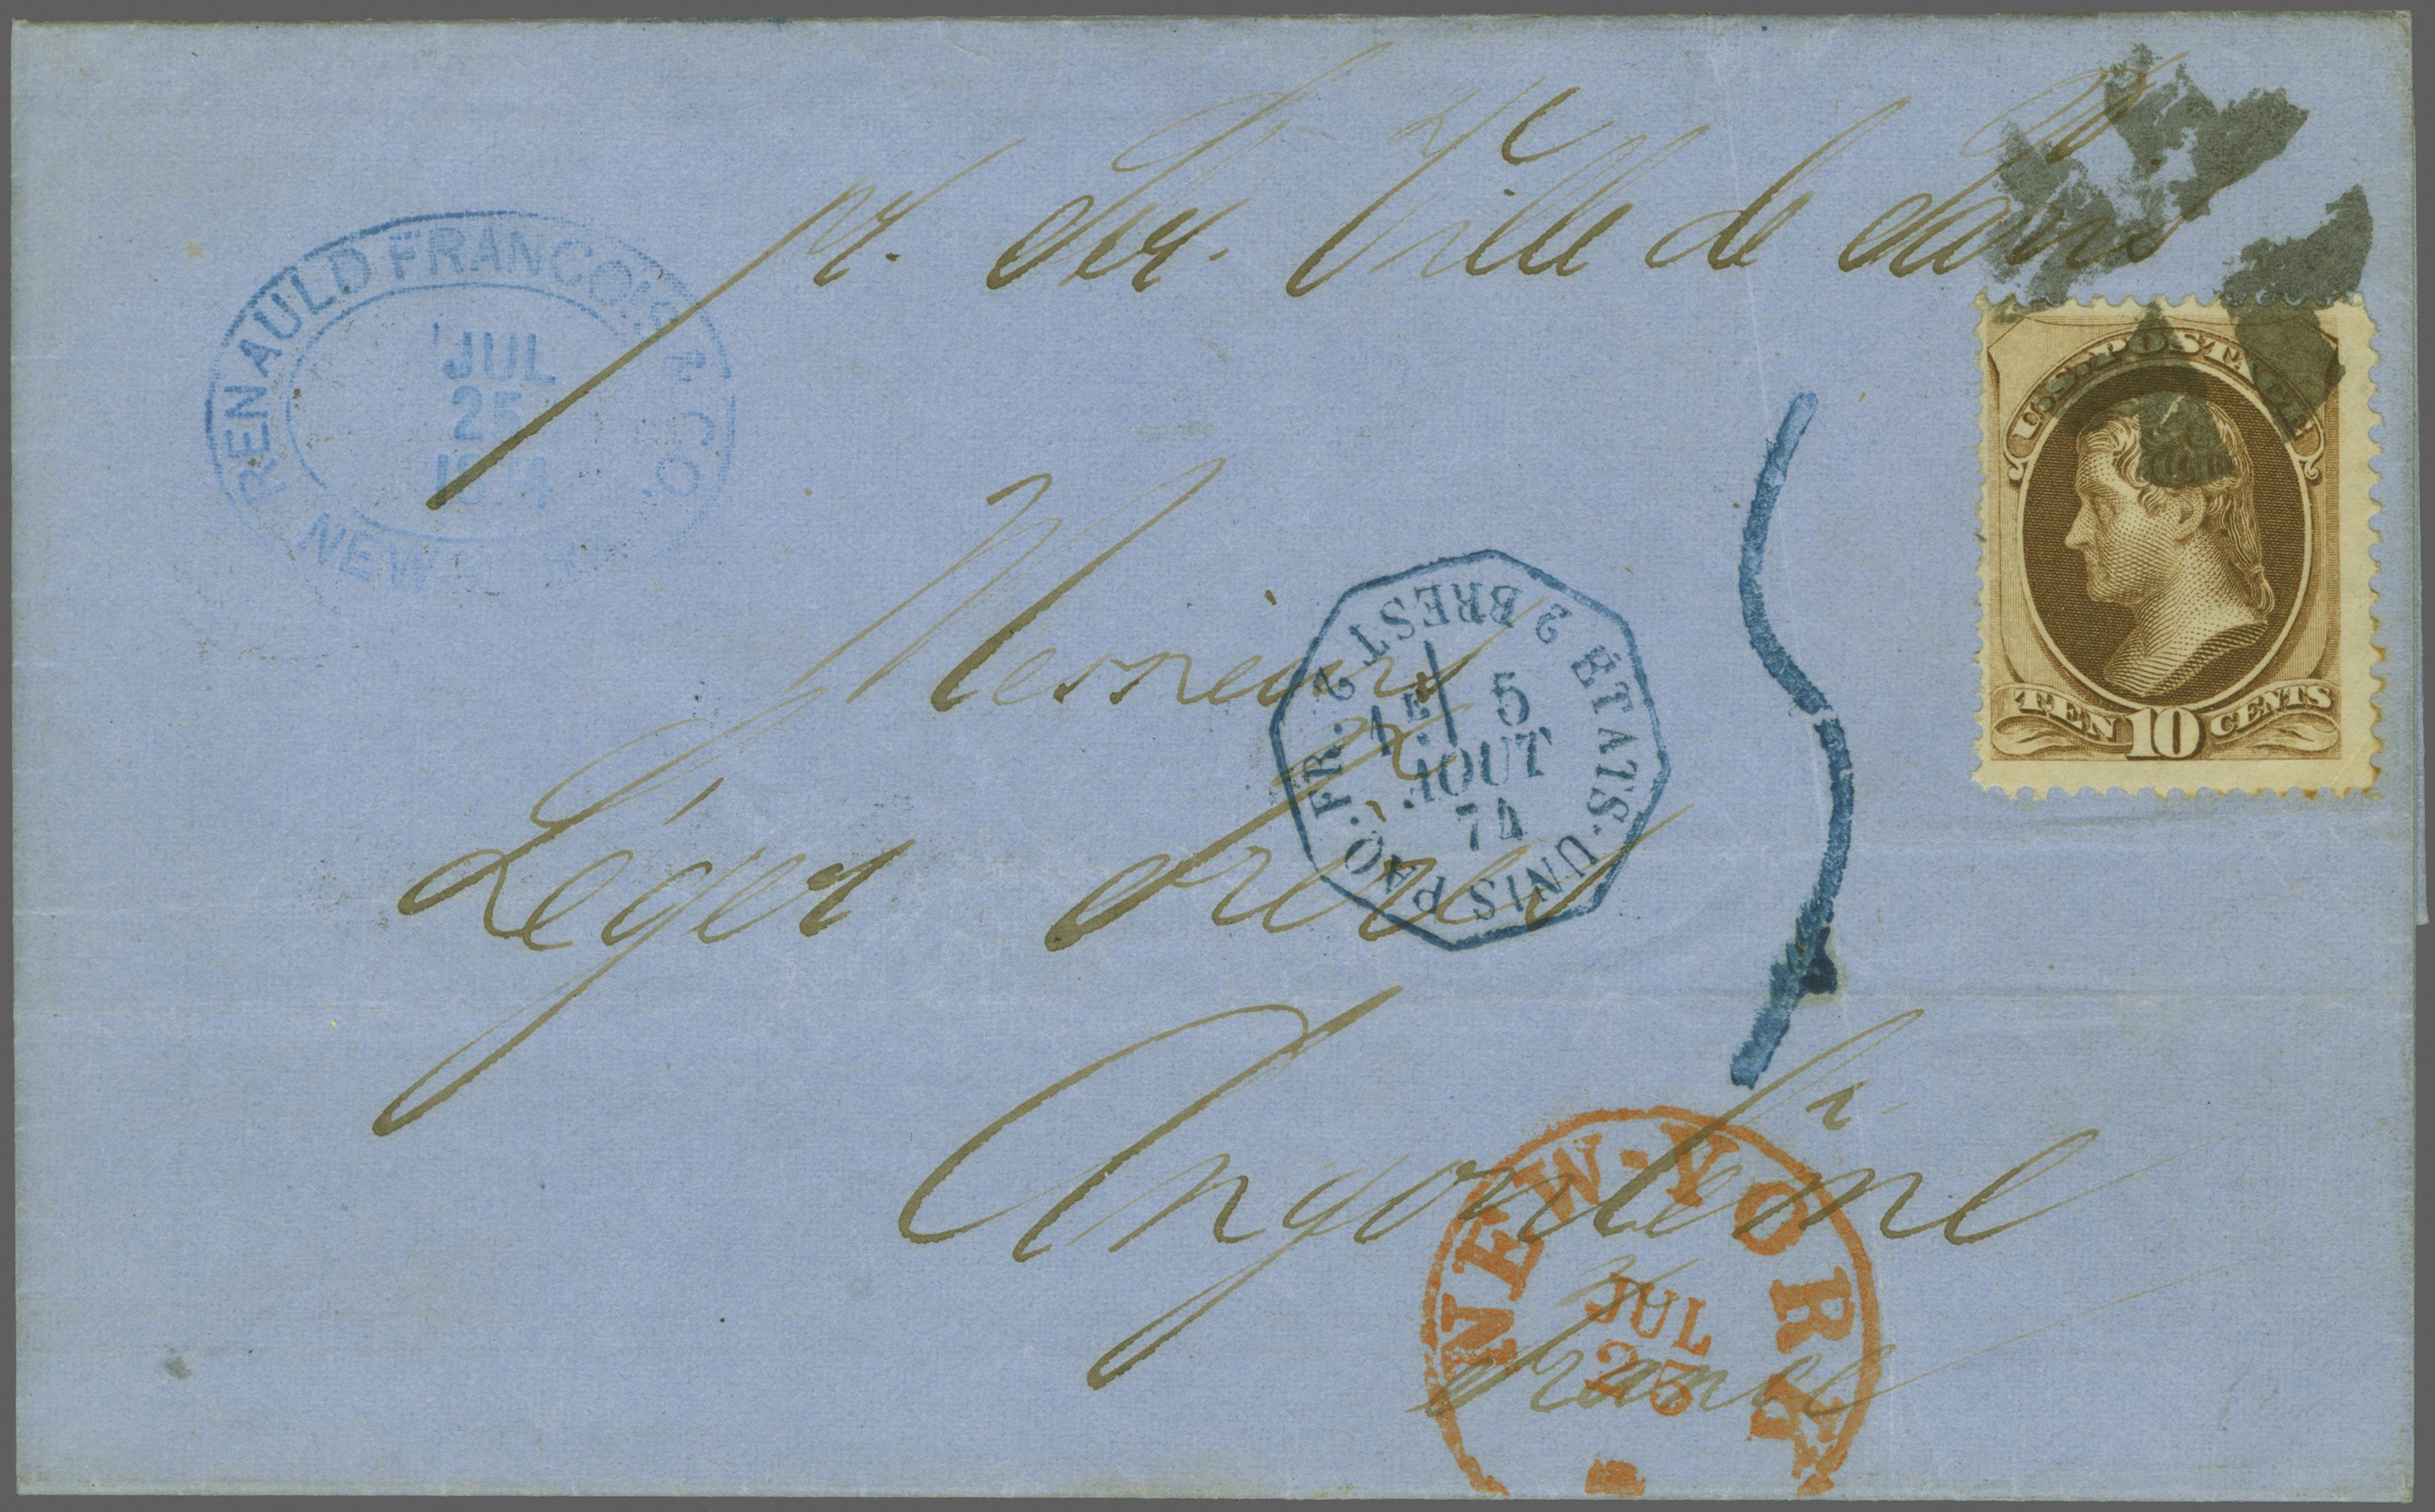 pr. Str. Ville de Paris
RENAULD FRANCOIS & CO.
JUL
25
1874
NEW-YORK
U.S. POSTAGE
TEN 10 CENTS
Messieurs
ÉTATS-UNIS PAQ. FR. 2 BREST 2
5
AOUT
74
Léger Frères
Angoulême
NEW-YORK
JUL
25
France